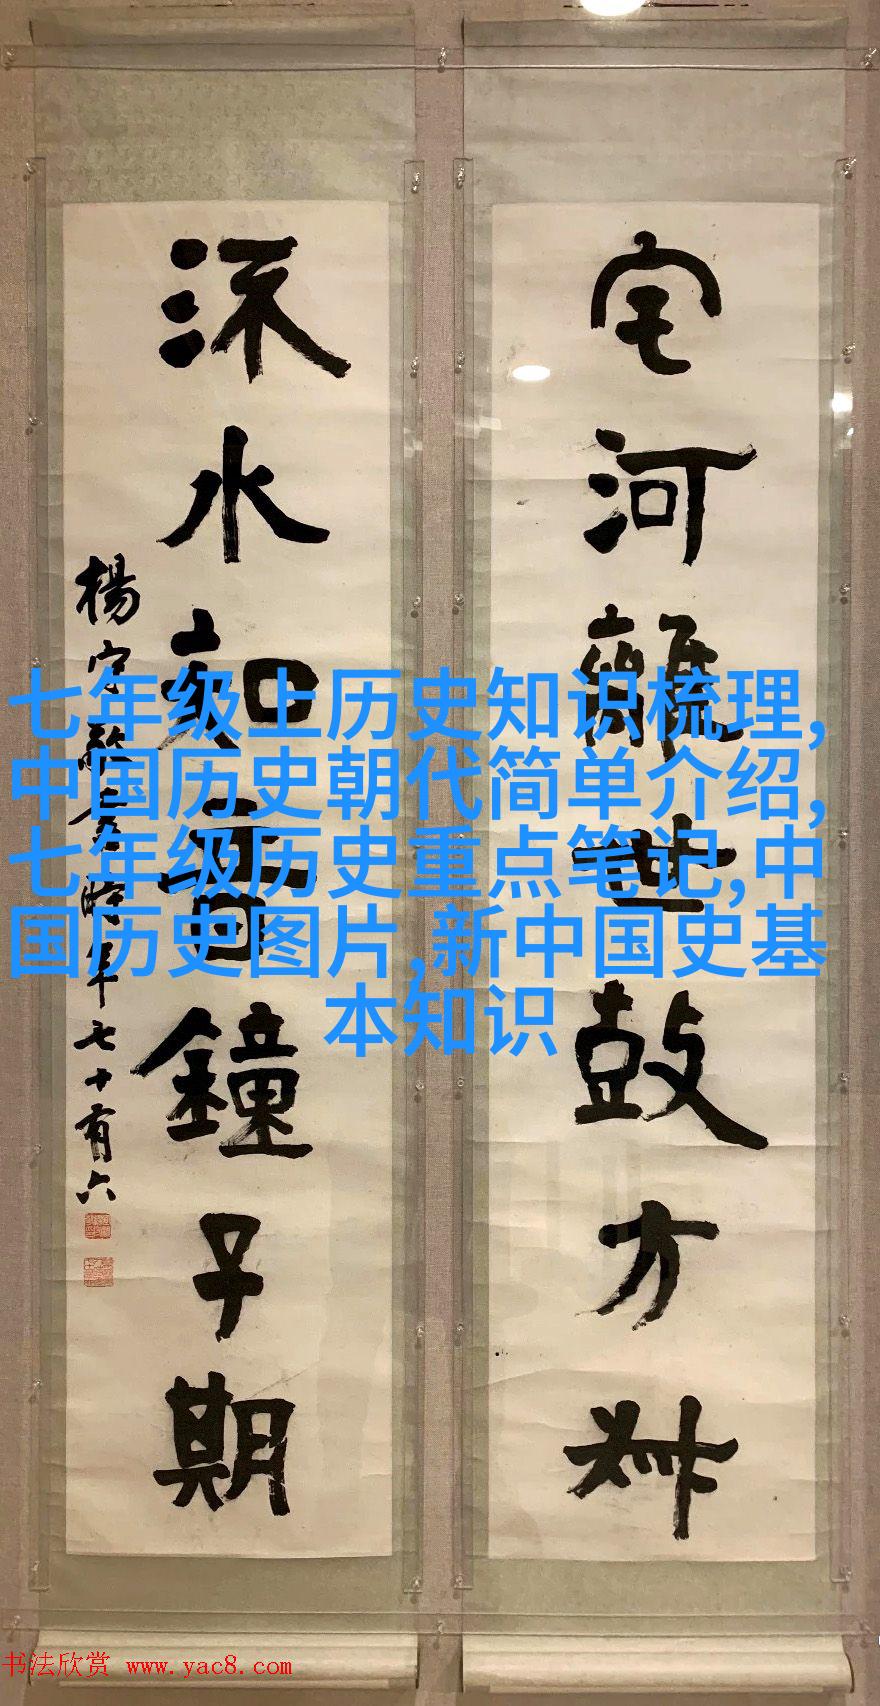 宅河離世鼓方叔
沠水知音鐘子期
楊守敬 時年七十有六
七年级上历史知识梳理,
中国历史朝代简单介绍,
七年级历史重点笔记,中
国历史图片,新中国史基
本知识
书法欣赏 www.yac8.com